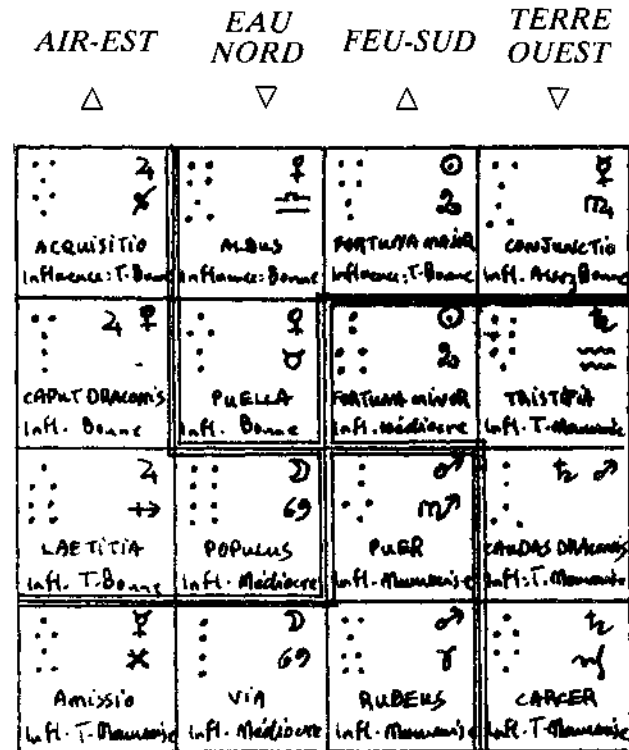 AIR-EST
EAU
NORD
FEU-SUD
TERRE
OUEST
ACQUISITIO
Influence: T-Bonne
ALBUS
Influence: Bonne
FORTUNA MAJOR
Influence: T-Bonne
CONJUNCTIO
Infl. Assez Bonne
CAPUT DRACONIS
Infl. Bonne
PUELLA
Infl. Bonne
FORTUNA MINOR
Infl. Médiocre
TRISTITIA
Infl. T-Mauvaise
LAETITIA
Infl. T-Bonne
POPULUS
Infl. Médiocre
PUER
Infl. Mauvaise
CAUDAS DRACONIS
Infl: T. Mauvaise
Amissio
Infl. T-Mauvaise
VIA
Infl. Médiocre
RUBEUS
Infl. Mauvaise
CARCER
Infl. T-Mauvaise